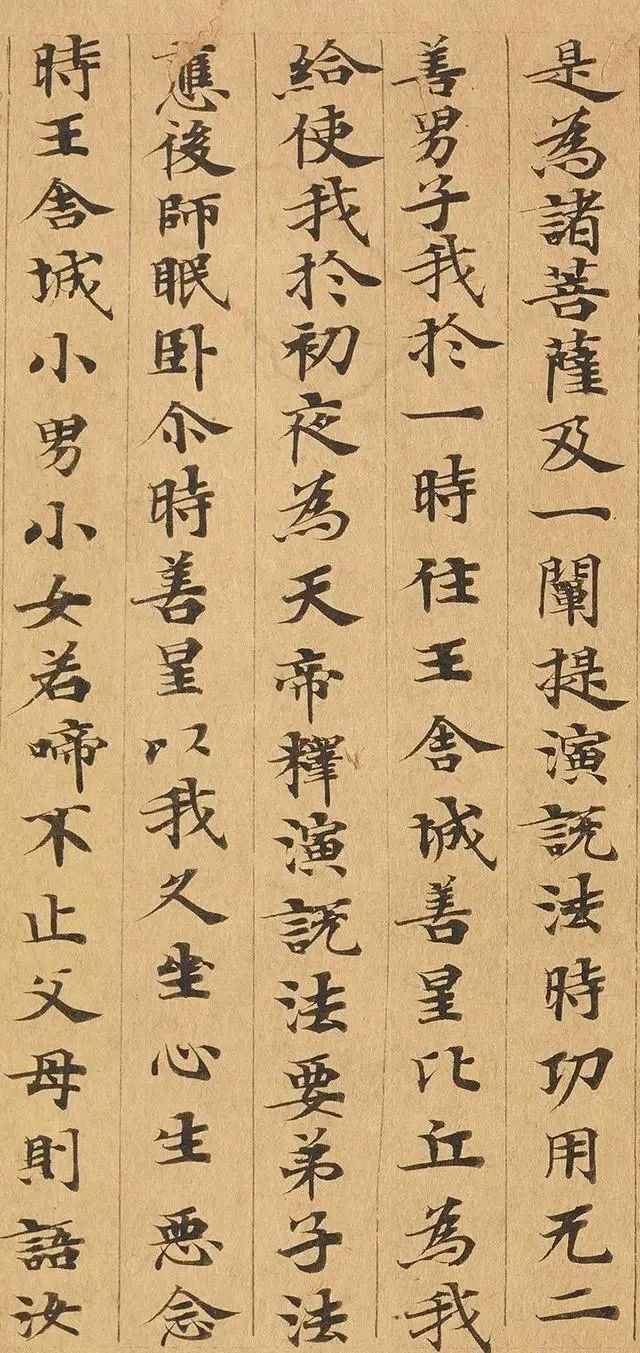 是為諸菩薩及一闡提演說法時功用无二
善男子我於一時住王舍城善星比丘為我
給使我於初夜為天帝釋演說法要弟子法
應後師眠卧尒時善星以我久坐心生惡念
時王舍城小男小女若啼不止父母則語汝